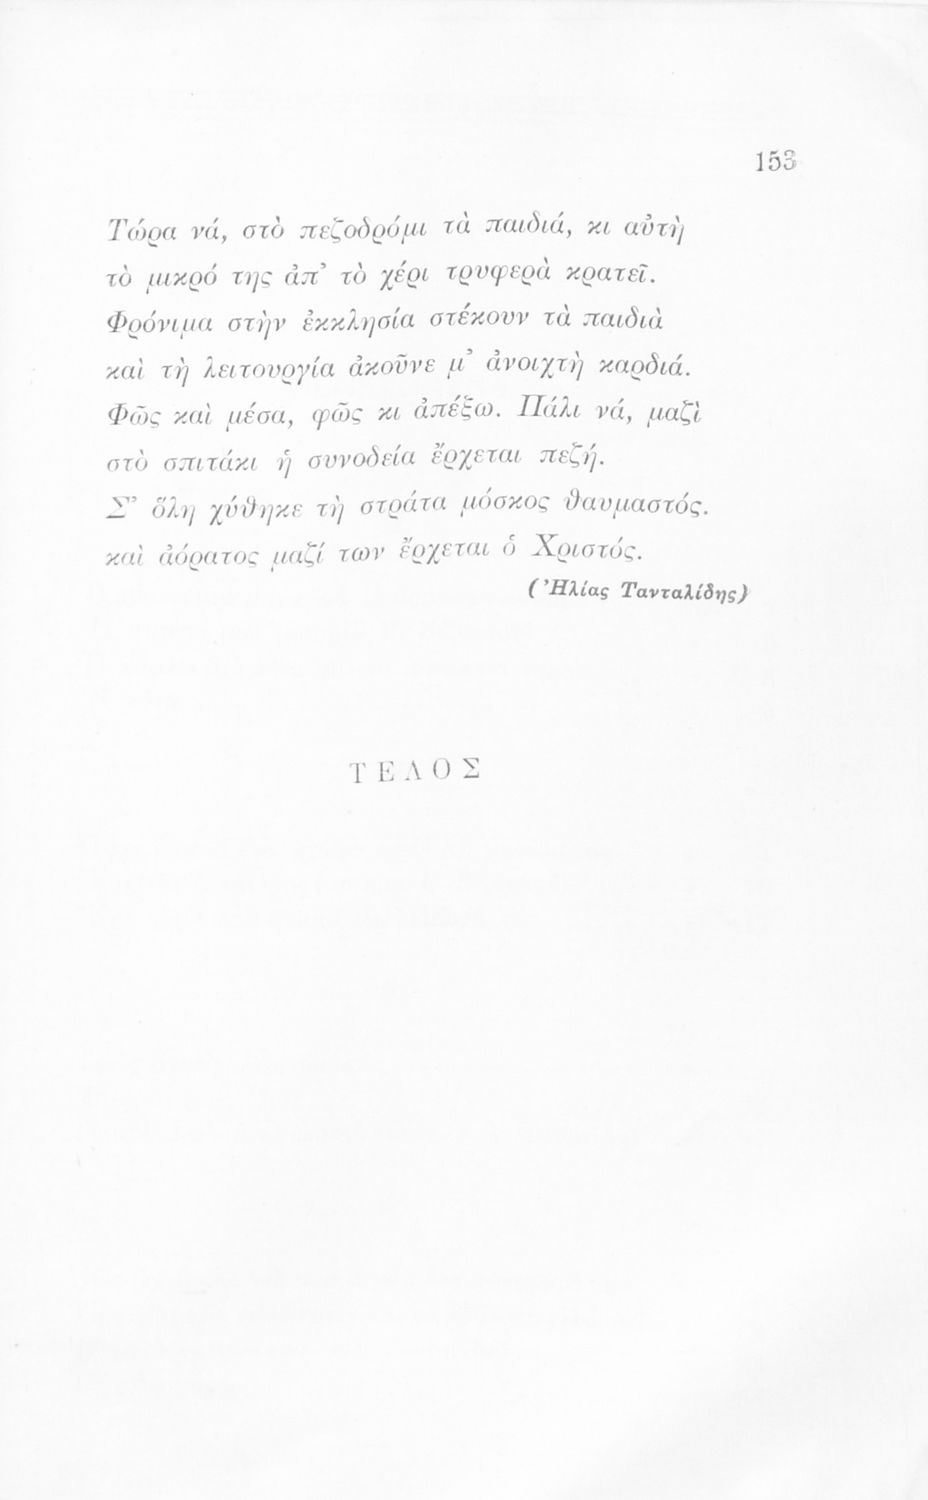 153
Τώρα νά, στὸ πεζοδρόμι τὰ παιδιά, κι αὐτὴ
τὸ μικρό της ἀπ’ τὸ χέρι τρυφερὰ κρατεῖ.
Φρόνιμα στὴν ἐκκλησία στέκουν τὰ παιδιὰ
καὶ τὴ λειτουργία ἀκοῦνε μ’ ἀνοιχτὴ καρδιά.
Φῶς καὶ μέσα, φῶς κι ἀπέξω. Πάλι νά, μαζὶ
στὸ σπιτάκι ἡ συνοδεία ἔρχεται πεζή.
Σ’ ὅλη χύθηκε τὴ στράτα μόσκος θαυμαστός.
καὶ ἀόρατος μαζί των ἔρχεται ὁ Χριστός.
(Ἠλίας Τανταλίδης)
ΤΕΛΟΣ